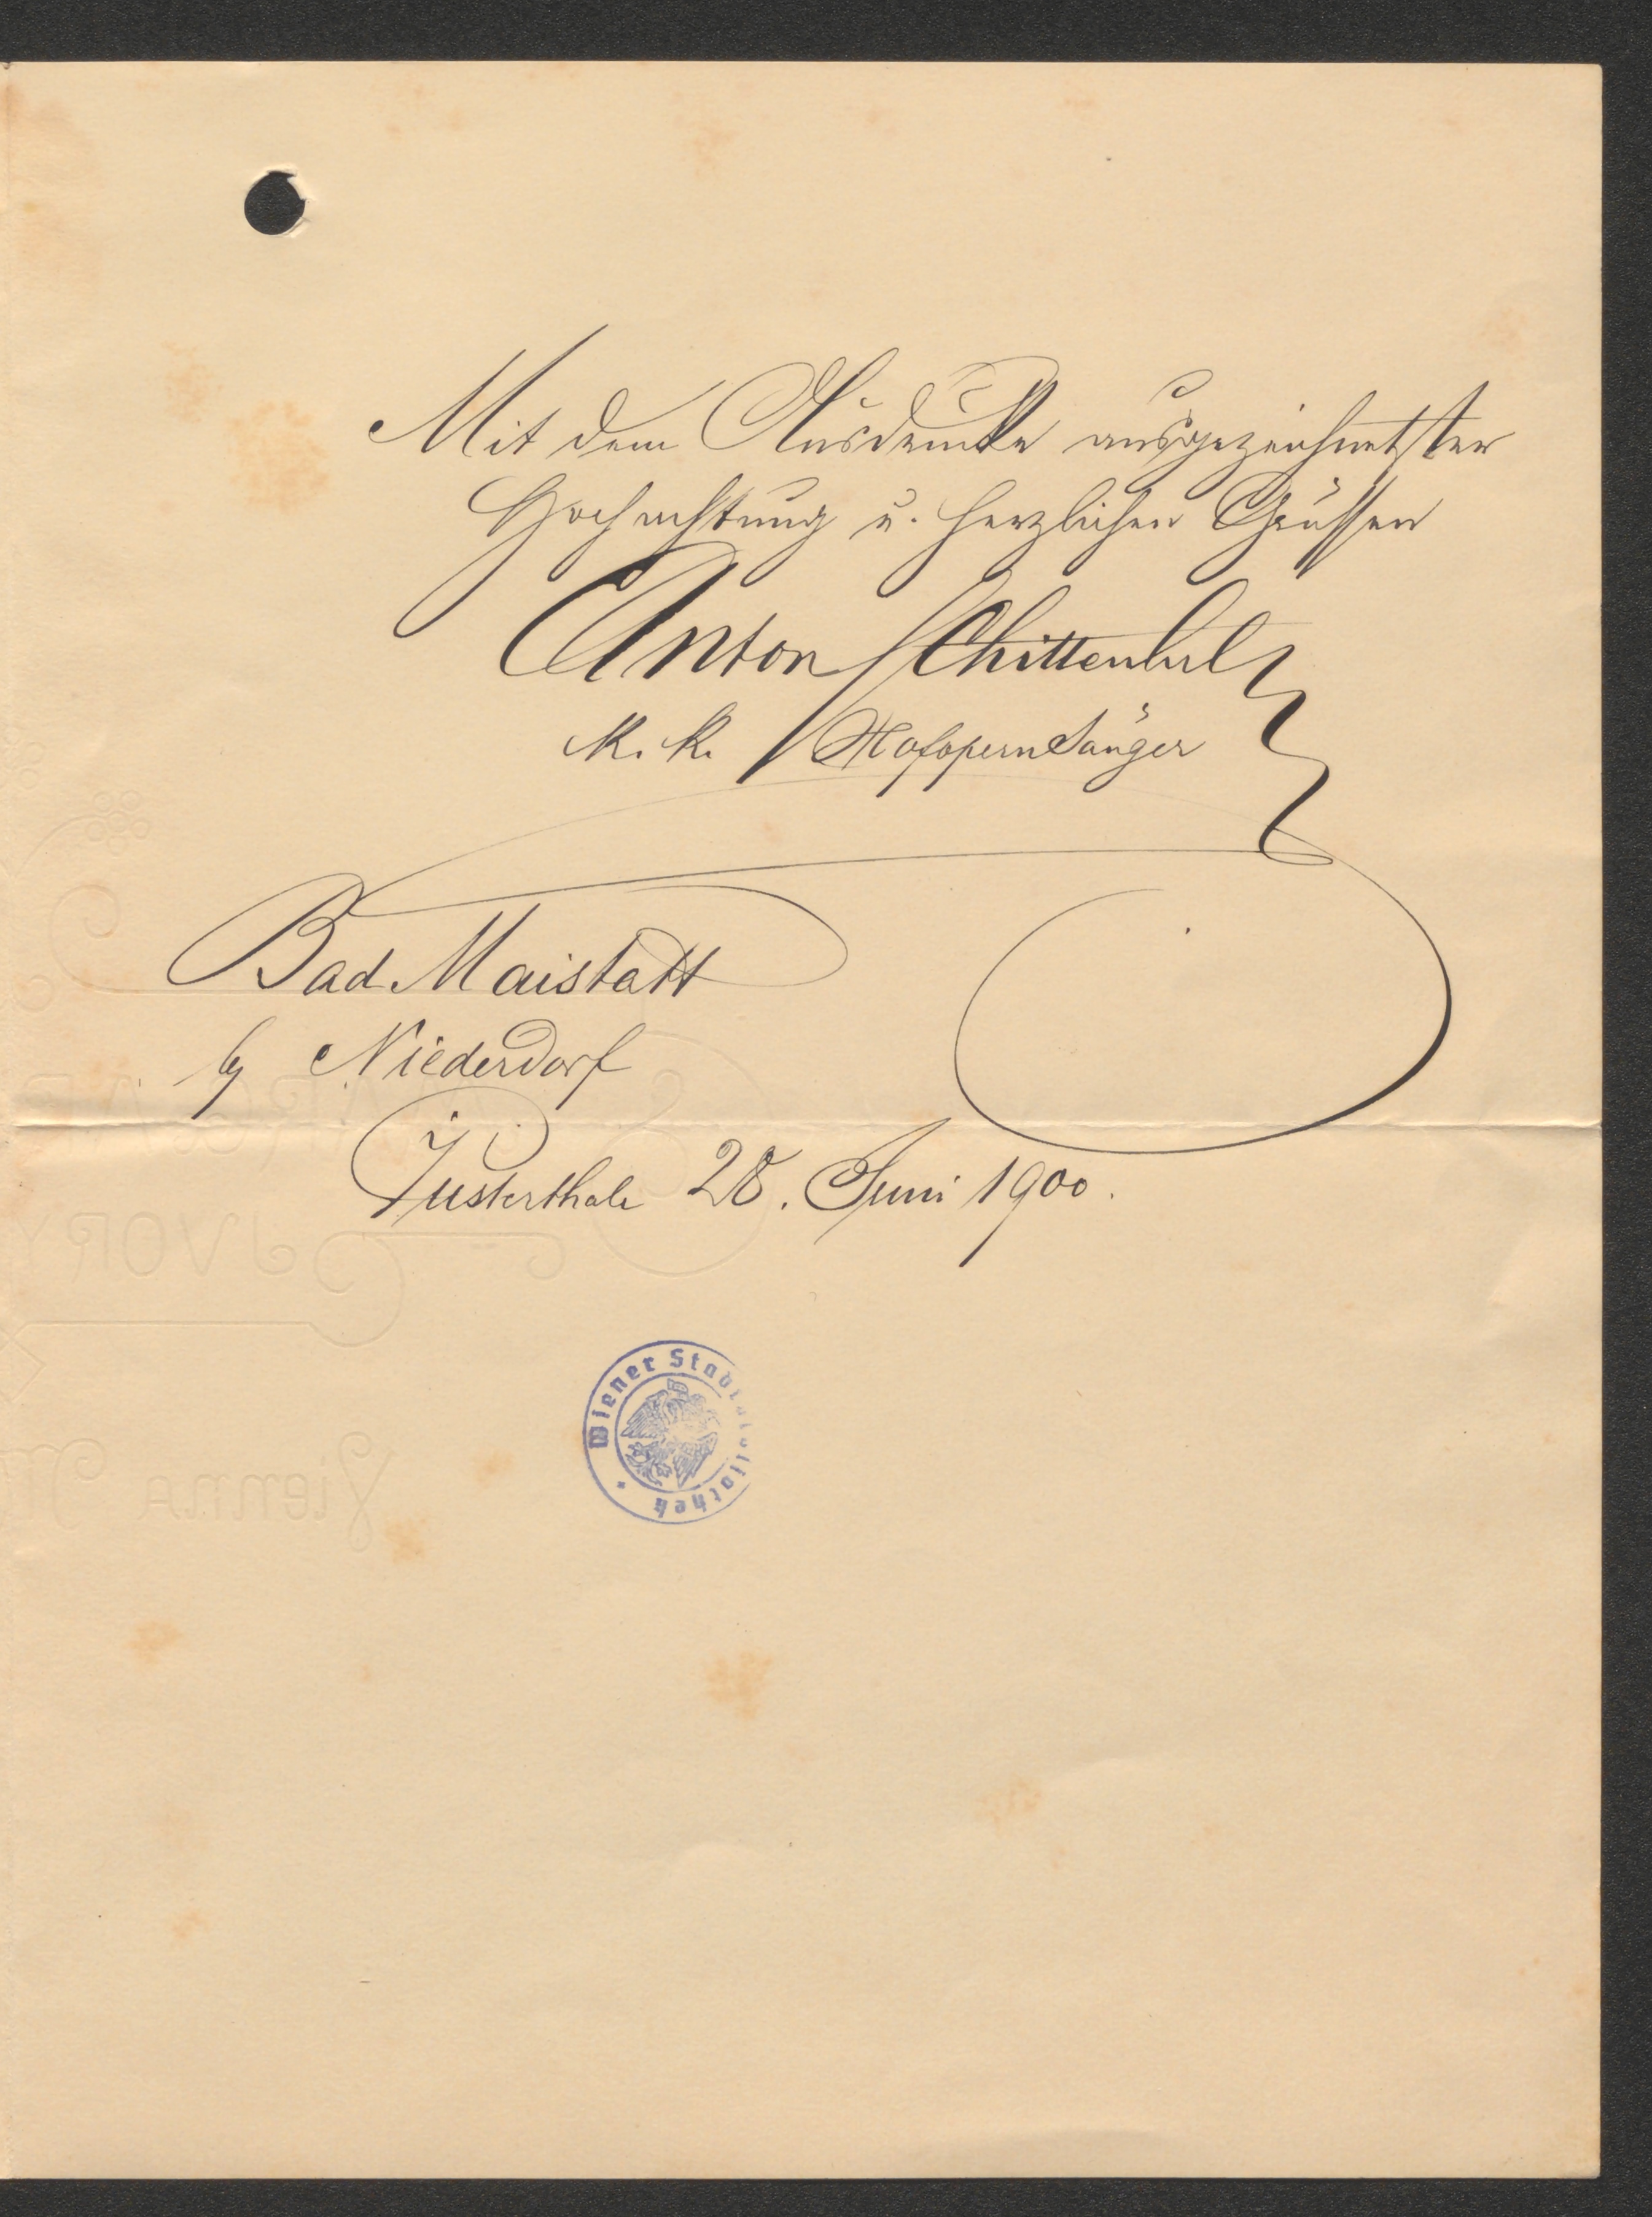 Mit dem Ausdrucke ausgezeichnetster
Hochachtung u. herzlichen Grüssen
Anton Schittenhelm
K. K. Hofopernsänger
Bad Maistatt
by Niederdorf
Pusterthale 28. Juni 1900.
JVORY
Vienna
Wiener Stadtbibliothek